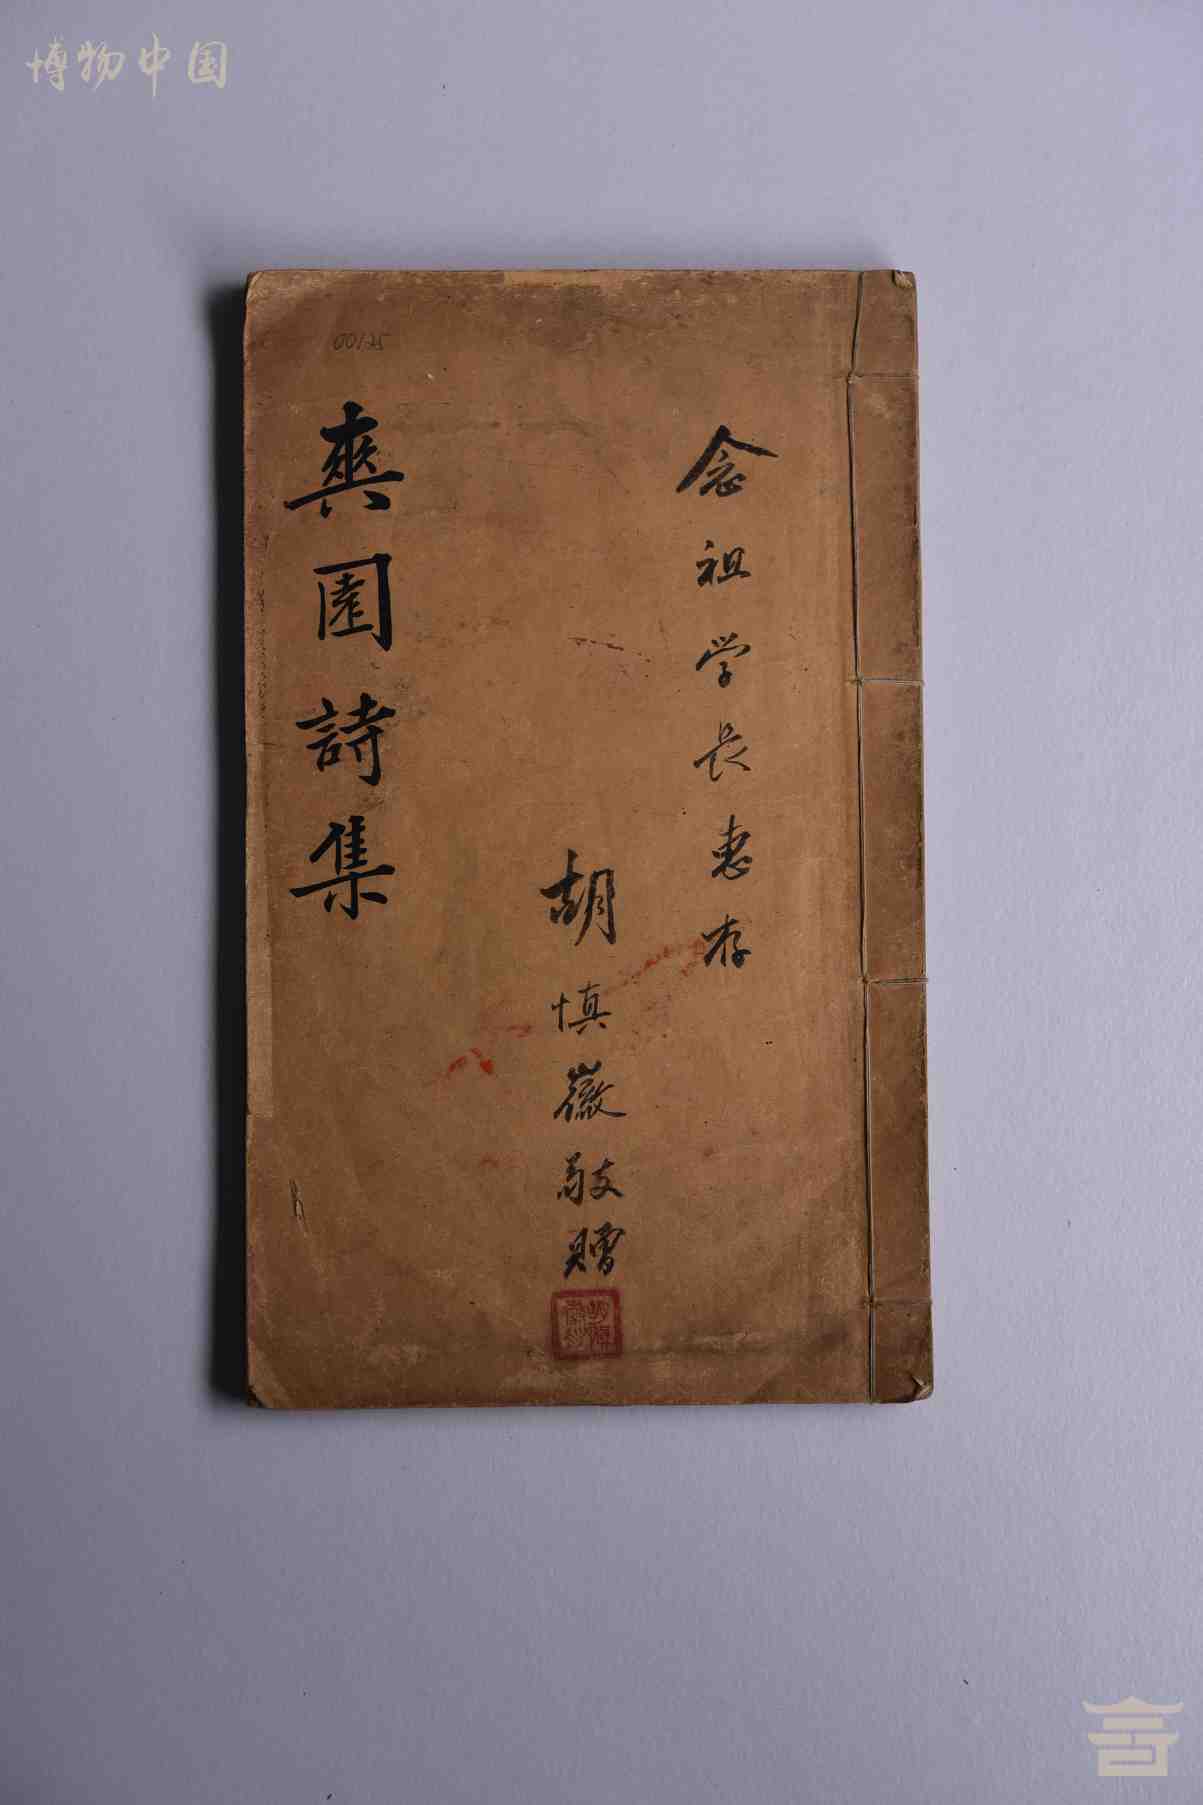 博物中国
00125
念祖学長惠存
胡慎徽敬贈
園詩集